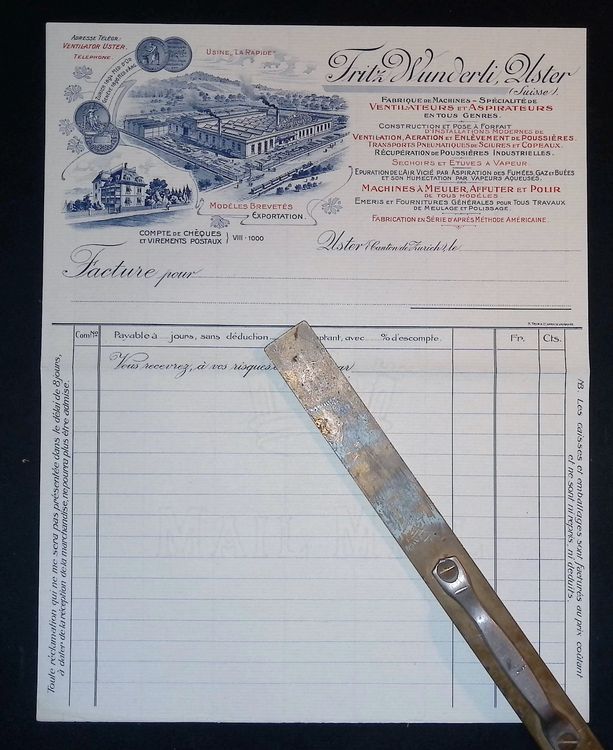 Adresse Télégr.:
Ventilator Uster.
Téléphone.
Usine "La Rapide"
Fritz Wunderli, Uster
(Suisse).
Fabrique de Machines – Spécialité de
Ventilateurs et Aspirateurs
en tous genres.
Construction et Pose à Forfait
d'Installations Modernes de
Ventilation, Aération et Enlèvement de Poussières
Transports Pneumatiques de Sciures et Copeaux.
Récupération de Poussières Industrielles.
Sechoirs et Etuves à Vapeur.
Epuration de l'Air Vicié par Aspiration des Fumées, Gaz et Buées
et son Humectation par Vapeurs Aqueuses.
Machines à Meuler, Affuter et Polir
de tous modèles
Emeris et Fournitures Générales pour Tous Travaux
de Meulage et Polissage.
Fabrication en Série d'après Méthode Américaine.
Modèles Brevetés
Exportation.
Compte de Chèques
et Virements Postaux } VIII · 1000
Uster (Canton de Zurich), le
Facture pour
Com No.
Payable à jours, sans déduction ptant, avec % d'escompte.
Fr.
Cts.
Vous recevrez, à vos risques par
Toute réclamation qui ne me sera pas présentée dans le délai de 8 jours,
à dater de la réception de la marchandise, ne pourra plus être admise.
NB Les caisses et emballages sont facturés au prix coûtant
et ne sont ni repris, ni déduits.